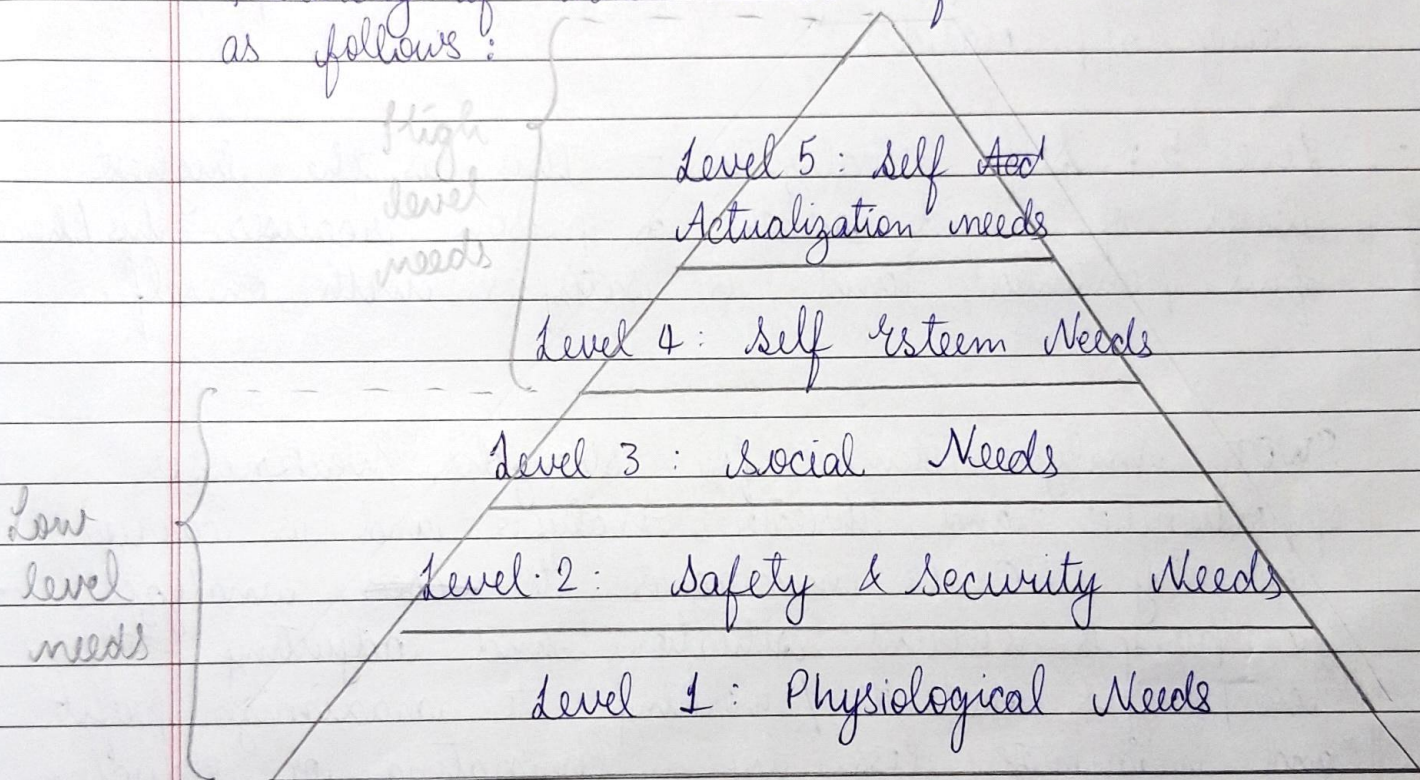 as follows:
High
level
needs
Level 5: Self
Actualization needs
Level 4: Self Esteem Needs
Level 3: Social Needs
Low
level
needs
Level 2: Safety & Security Needs
Level 1: Physiological Needs